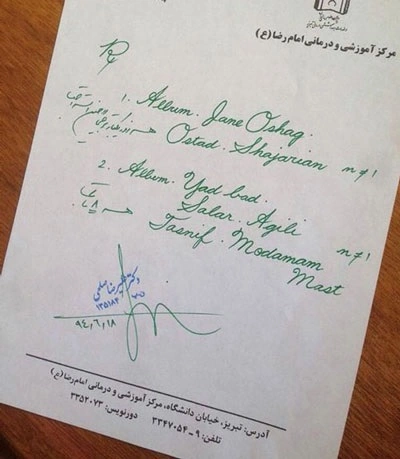 مرکز آموزشی و درمانی امام رضا (ع)
1. Album. Jane Oshag.
Ostad. Shajarian n≠1
2. Album. Yad bad.
Salar. Agili n≠1
Tasnif. Modamam
Mast
۱۳۵۱۸۳
۹۴/۶/۱۸
آدرس: تبریز، خیابان دانشگاه، مرکز آموزشی و درمانی امام رضا (ع)
تلفن: ۹-۳۳۴۷۰۵۴ دورنویس: ۳۳۵۲۰۷۳